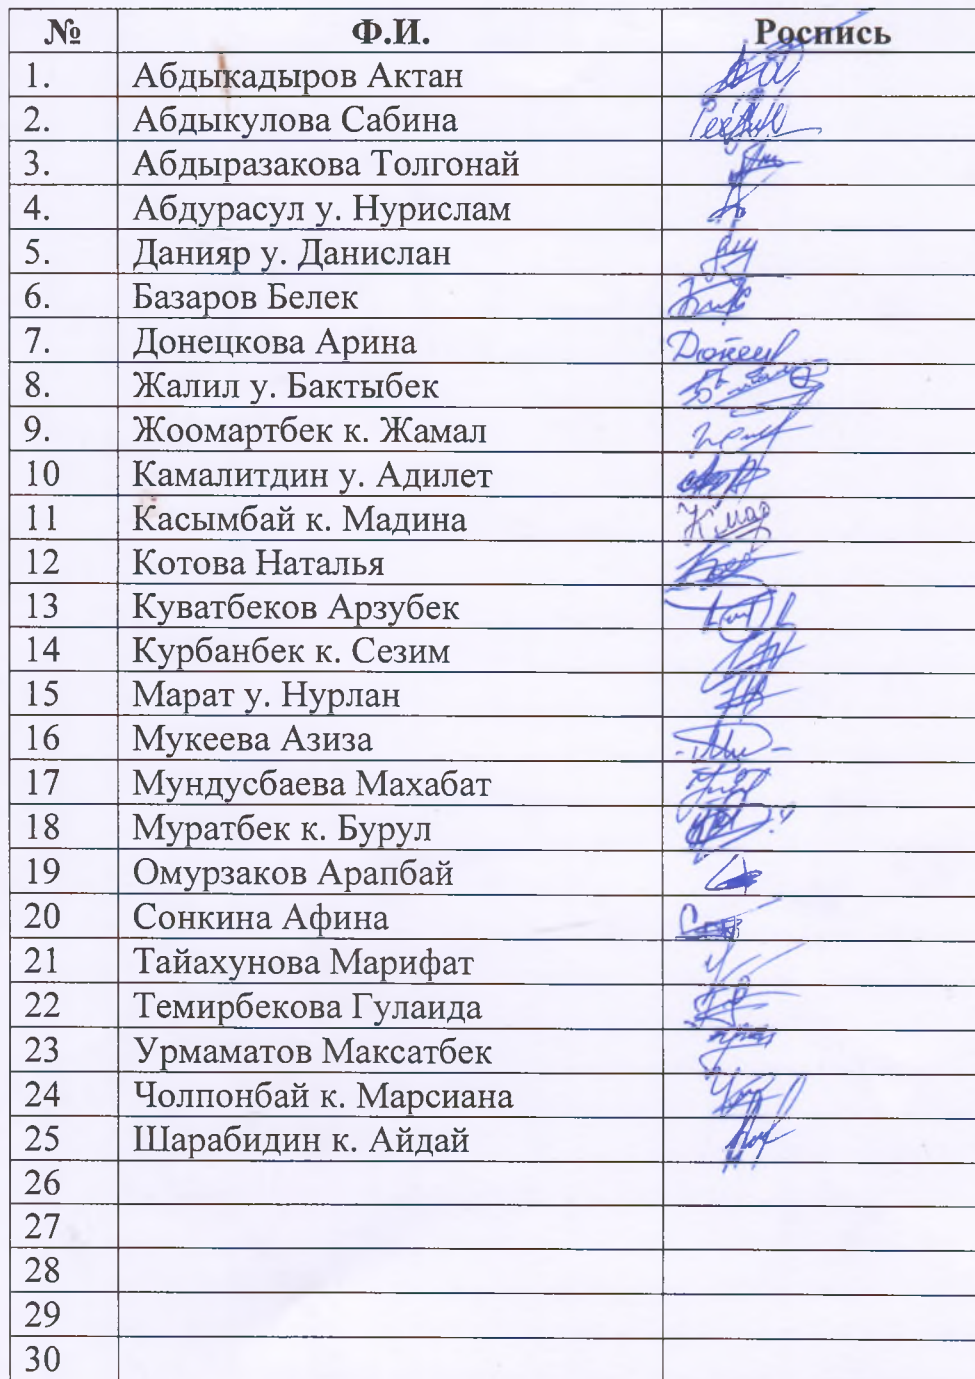 № Ф.И. Роспись
1. Абдыкадыров Актан
2. Абдыкулова Сабина
3. Абдыразакова Толгонай
4. Абдурасул у. Нурислам
5. Данияр у. Данислан
6. Базаров Белек
7. Донецкова Арина
8. Жалил у. Бактыбек
9. Жоомартбек к. Жамал
10 Камалитдин у. Адилет
11 Касымбай к. Мадина
12 Котова Наталья
13 Куватбеков Арзубек
14 Курбанбек к. Сезим
15 Марат у. Нурлан
16 Мукеева Азиза
17 Мундусбаева Махабат
18 Муратбек к. Бурул
19 Омурзаков Арапбай
20 Сонкина Афина
21 Тайахунова Марифат
22 Темирбекова Гулаида
23 Урмаматов Максатбек
24 Чолпонбай к. Марсиана
25 Шарабидин к. Айдай
26
27
28
29
30